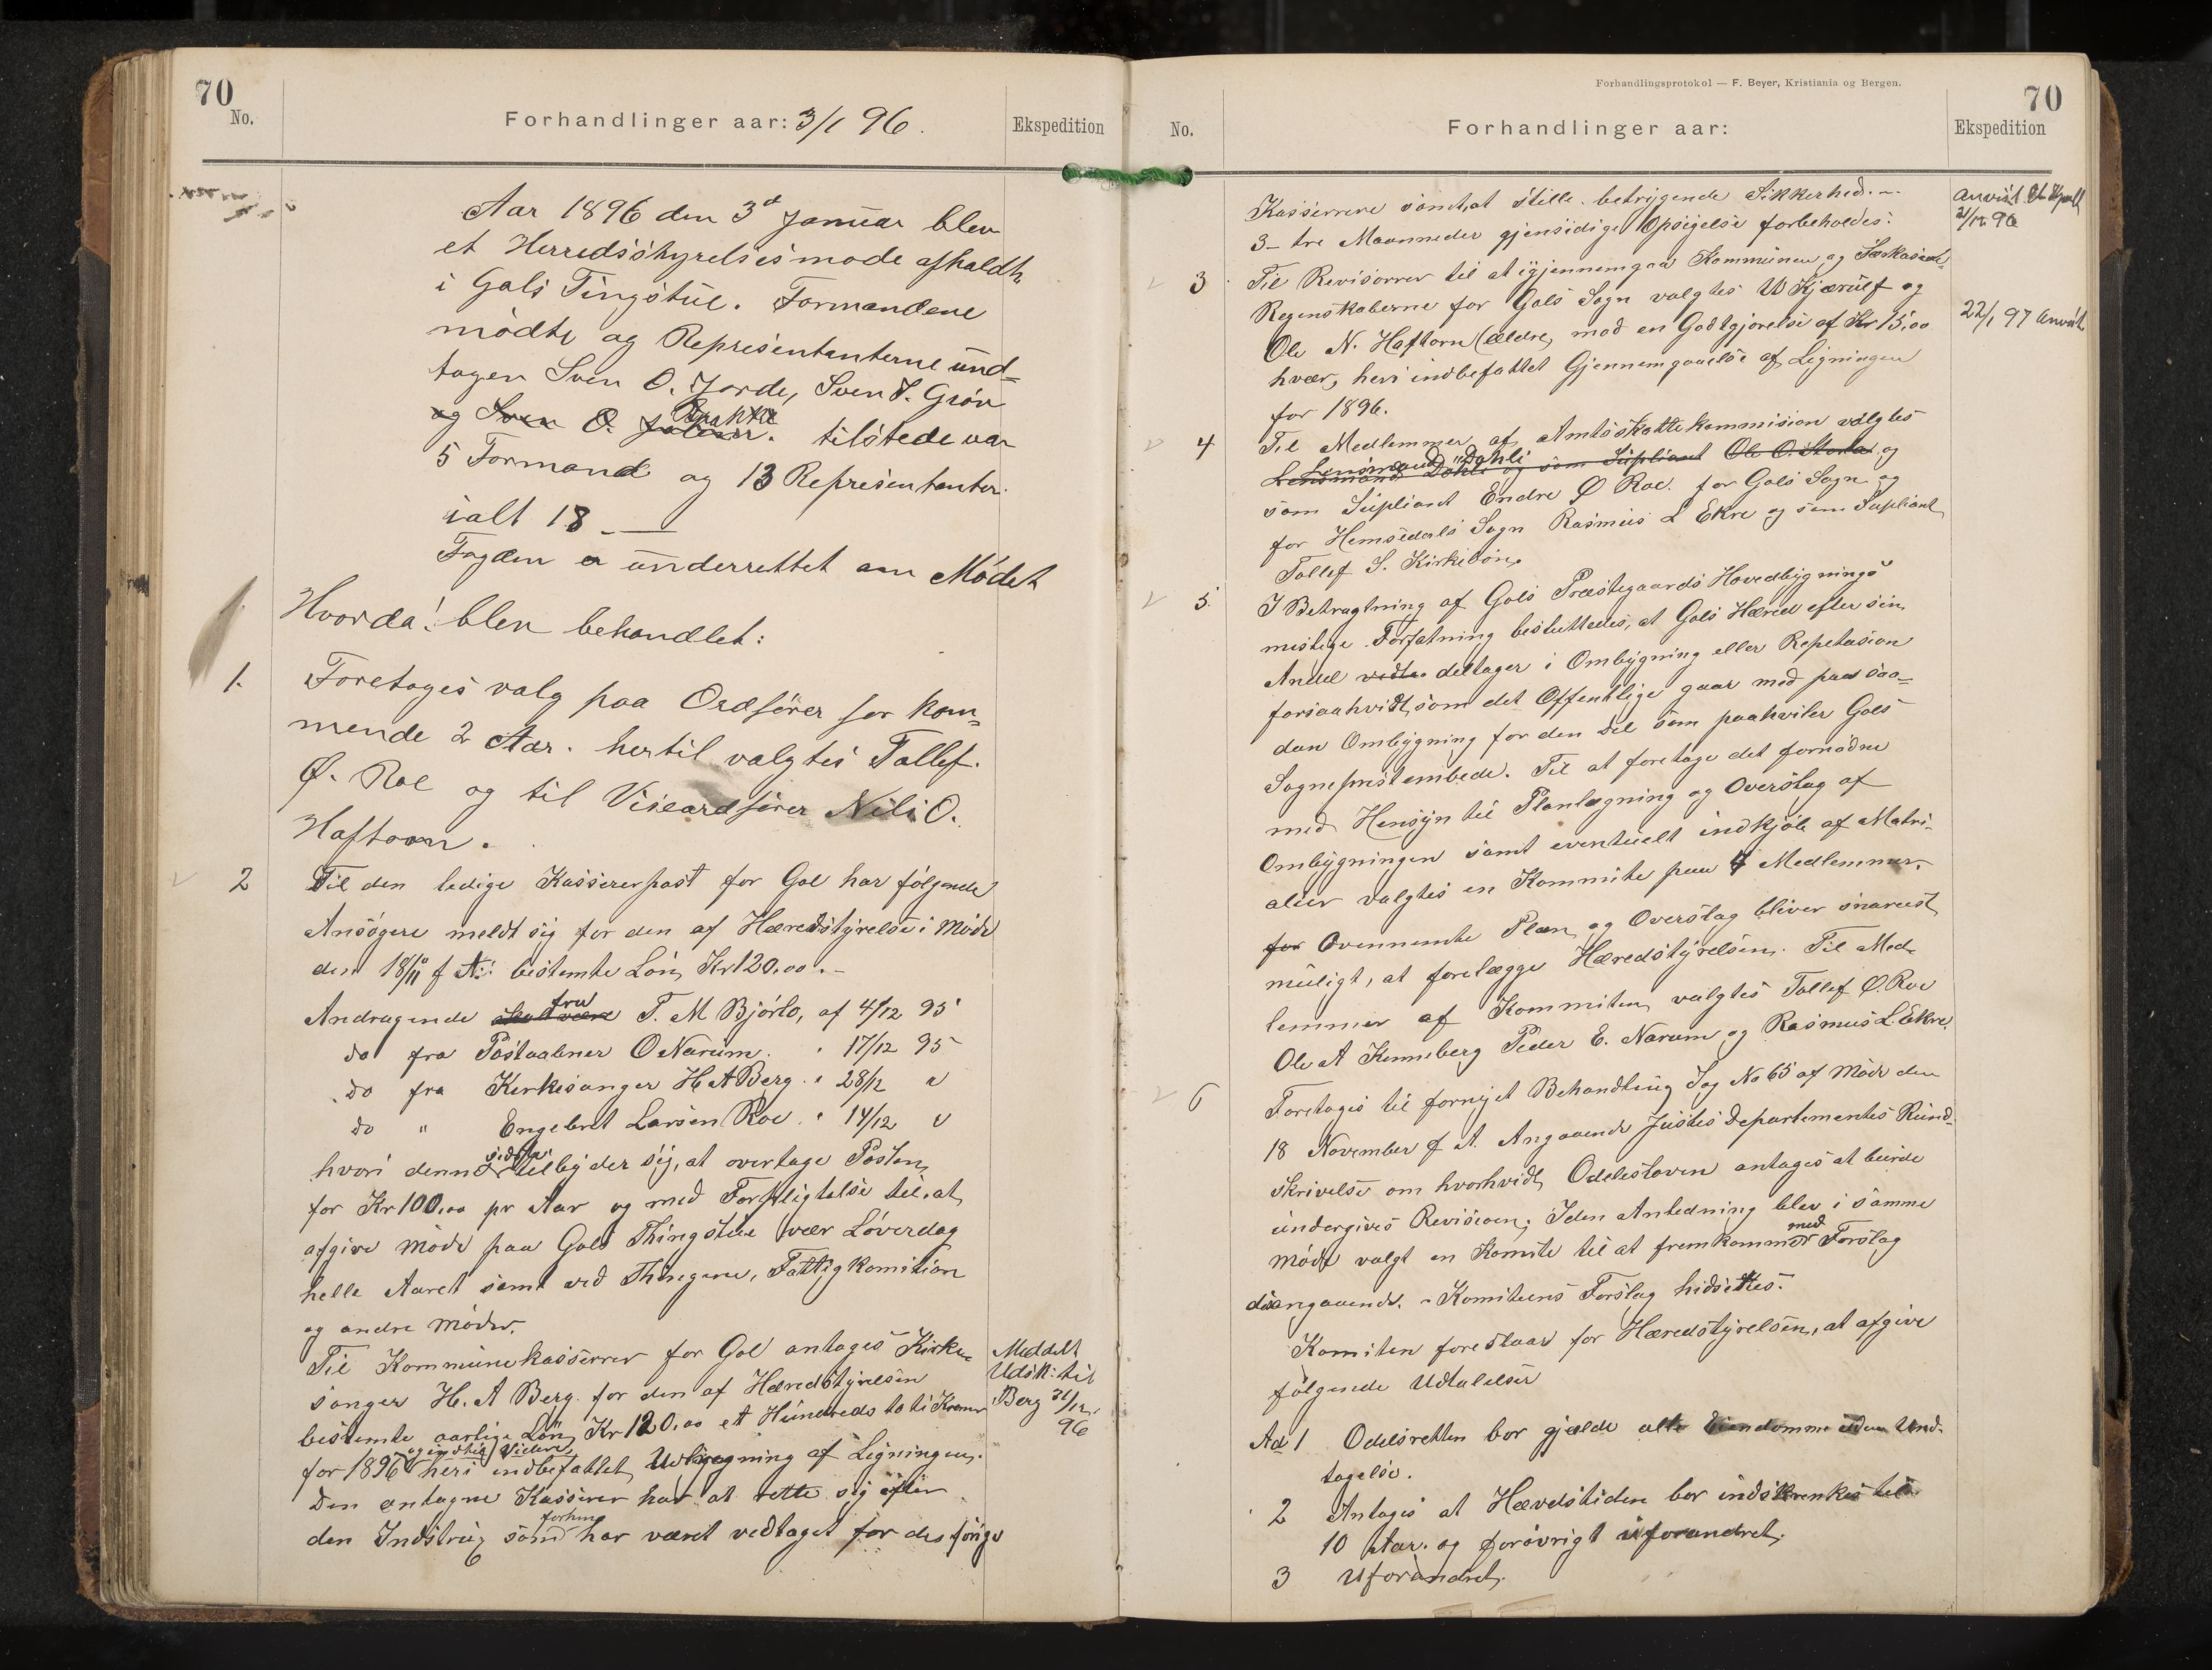 70
No.
Forhandlinger aar: 3/1 96.
Ekspedition
Aar 1896 den 3d Januar blev
et Herredsstyrelsesmøde afholdt
i Gols Tingstue. Formandene
mødte og Representanterne und=
tagen Sven O. Jorde, Sven T. Grøn
og Sven O.
tilstede var
5 Formænd og 13 Representanter.
ialt 18 —
Fogden er underrettet om Mødet
Hvorda! blev behandlet:
1. Foretoges valg paa Ordfører for kom=
mende 2 Aar. hertil valgtes Tollef
Ø. Roe og til Viseordfører Nils O.
Haftorn.
2 Til den ledige Kassererpost for Gol har følgende
Ansøgere meldt sig for den af Hæredstyrelse i Møde
den 18/11 f A: bestemte Løn, Kr 120,00.-
fra
Andragende T. M Bjørlo, af 4/12 95
do fra Postaabner O Narum. " 17/12 95
do fra Kirkesanger H A Berg. " 28/12 "
do " Engebret Larsen Roe. " 14/12 "
sidste
hvori denne tilbyder sig, at overtage Posten
for Kr 100,00 pr Aar og med Forpligtelse til, at
afgive møde paa Gols Thingstue hvær Løverdag
helle Aaret samt ved Thingene, Fattigkomision
og andre Møder.
Til Kommunekasserer for Gol antages Kirke=
sanger H. A Berg for den af Hæredstyrelsen
bestemte aarlige Løn, Kr 120,00 et Hundrede toti Kroner
og indtil Videre,
for 1896 heri indbefattet Udligning af Ligningen.
Den antagne Kasserer har at rette sig efter
forhen
den Instrux som har været vedtaget for des forige
Meddelt
Udsk: til
Berg 31/12
96
Forhandlingsprotokol — F. Beyer, Kristiania og Bergen.
70
No.
Forhandlinger aar:
Ekspedition
Kasserere samt, at stille betrygende Sikkerhed.—
3- tre Maanneder gjensidige Opsigelse forbeholdes.
anvist
31/12 96
3 Til Revisorer til at igjennemgaa Kommunen og
Regnskaberne for Gols Sogn valgtes W Kjærulf og
Ole N. Haftorn (ældre, mod en Godtgjørelse af Kr 15,00
hvær, heri indbefattet Gjennemgaaelse af Ligningen
for 1896.
22/1 97 Anvist.
4 Til Medlemmer af Amtsskattekommision valgtes
Lensmand Dahli
Lensmand Dahli og som Supliant Ole O. Storla og
som Supliant Endre Ø Roe. for Gols Sogn og
for Hemsedals Sogn Rasmus L Ekre og som Supliant
Tollef S. Kirkebøn.
5 I Betragtning af Gols Præstegaards Hovedbygnings
mislige Forfatning besluttedes, at Gols Hæred efter sin
Andel deltager i Ombygning eller Repetasion
forsaahvidt, som det Offentlige gaar med paa saa=
dan Ombygning for den Del som paahviler Gols
Sogneprestembede. Til at foretage det fornødne
med Hensyn til Planlægning og Overslag af
Ombygningen samt eventuelt indkjøb af Matri-
alier valgtes en Kommite paa 4 Medlemmer.
for Ovennemte Plan og Overslag bliver snarest
muligt, at forelægge Hæredstyrelsen. Til Med-
lemmer af Kommiten valgtes Tollef Ø. Roe
Ole A Kinneberg Peder E. Narum og Rasmus L. Ekre.
6 Foretoges til fornyet Behandling Sag No 65 af Møde den
18 November f A. Angaaende Justisdepartementes Rund-
skrivelse om hvorhvidt Odelsloven antages at burde
undergives Revision; Iden Anledning blev i samme
med
Møde valgt en Komite til at fremkommer Forslag
desangaaende. - Komiteens Forslag hidsættes.
Komiten foreslaar for Hæredstyrelsen, at afgive
følgende Udtalelser
Ad 1 Odelsretten bør gjælde alle Eiendomme uden Und-
tagelse.
2 Antages at Hævdstiden bør indskrænkes til
10 Aar. og forøvrigt uforandret,
3 Uforandret.